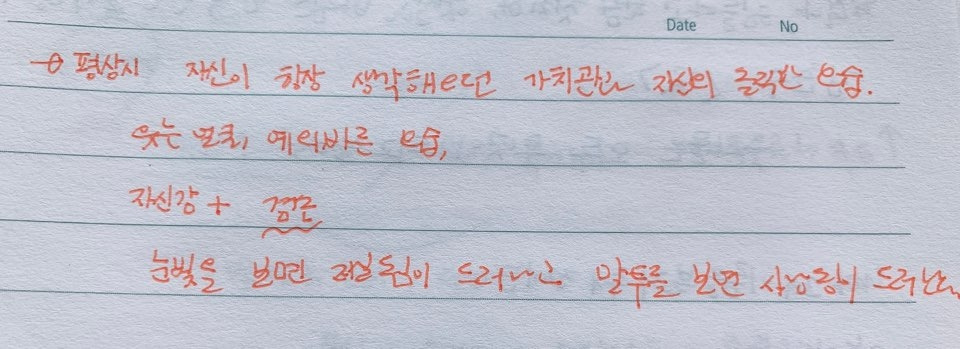 Date No
→ 평상시 자신이 항상 생각해오던 가치관과 자신의 노력한 모습.
웃는 얼굴, 예의바른 모습,
자신감 + 겸손
눈빛을 보면 이 드러나고 말투를 보면 이 드러난다.